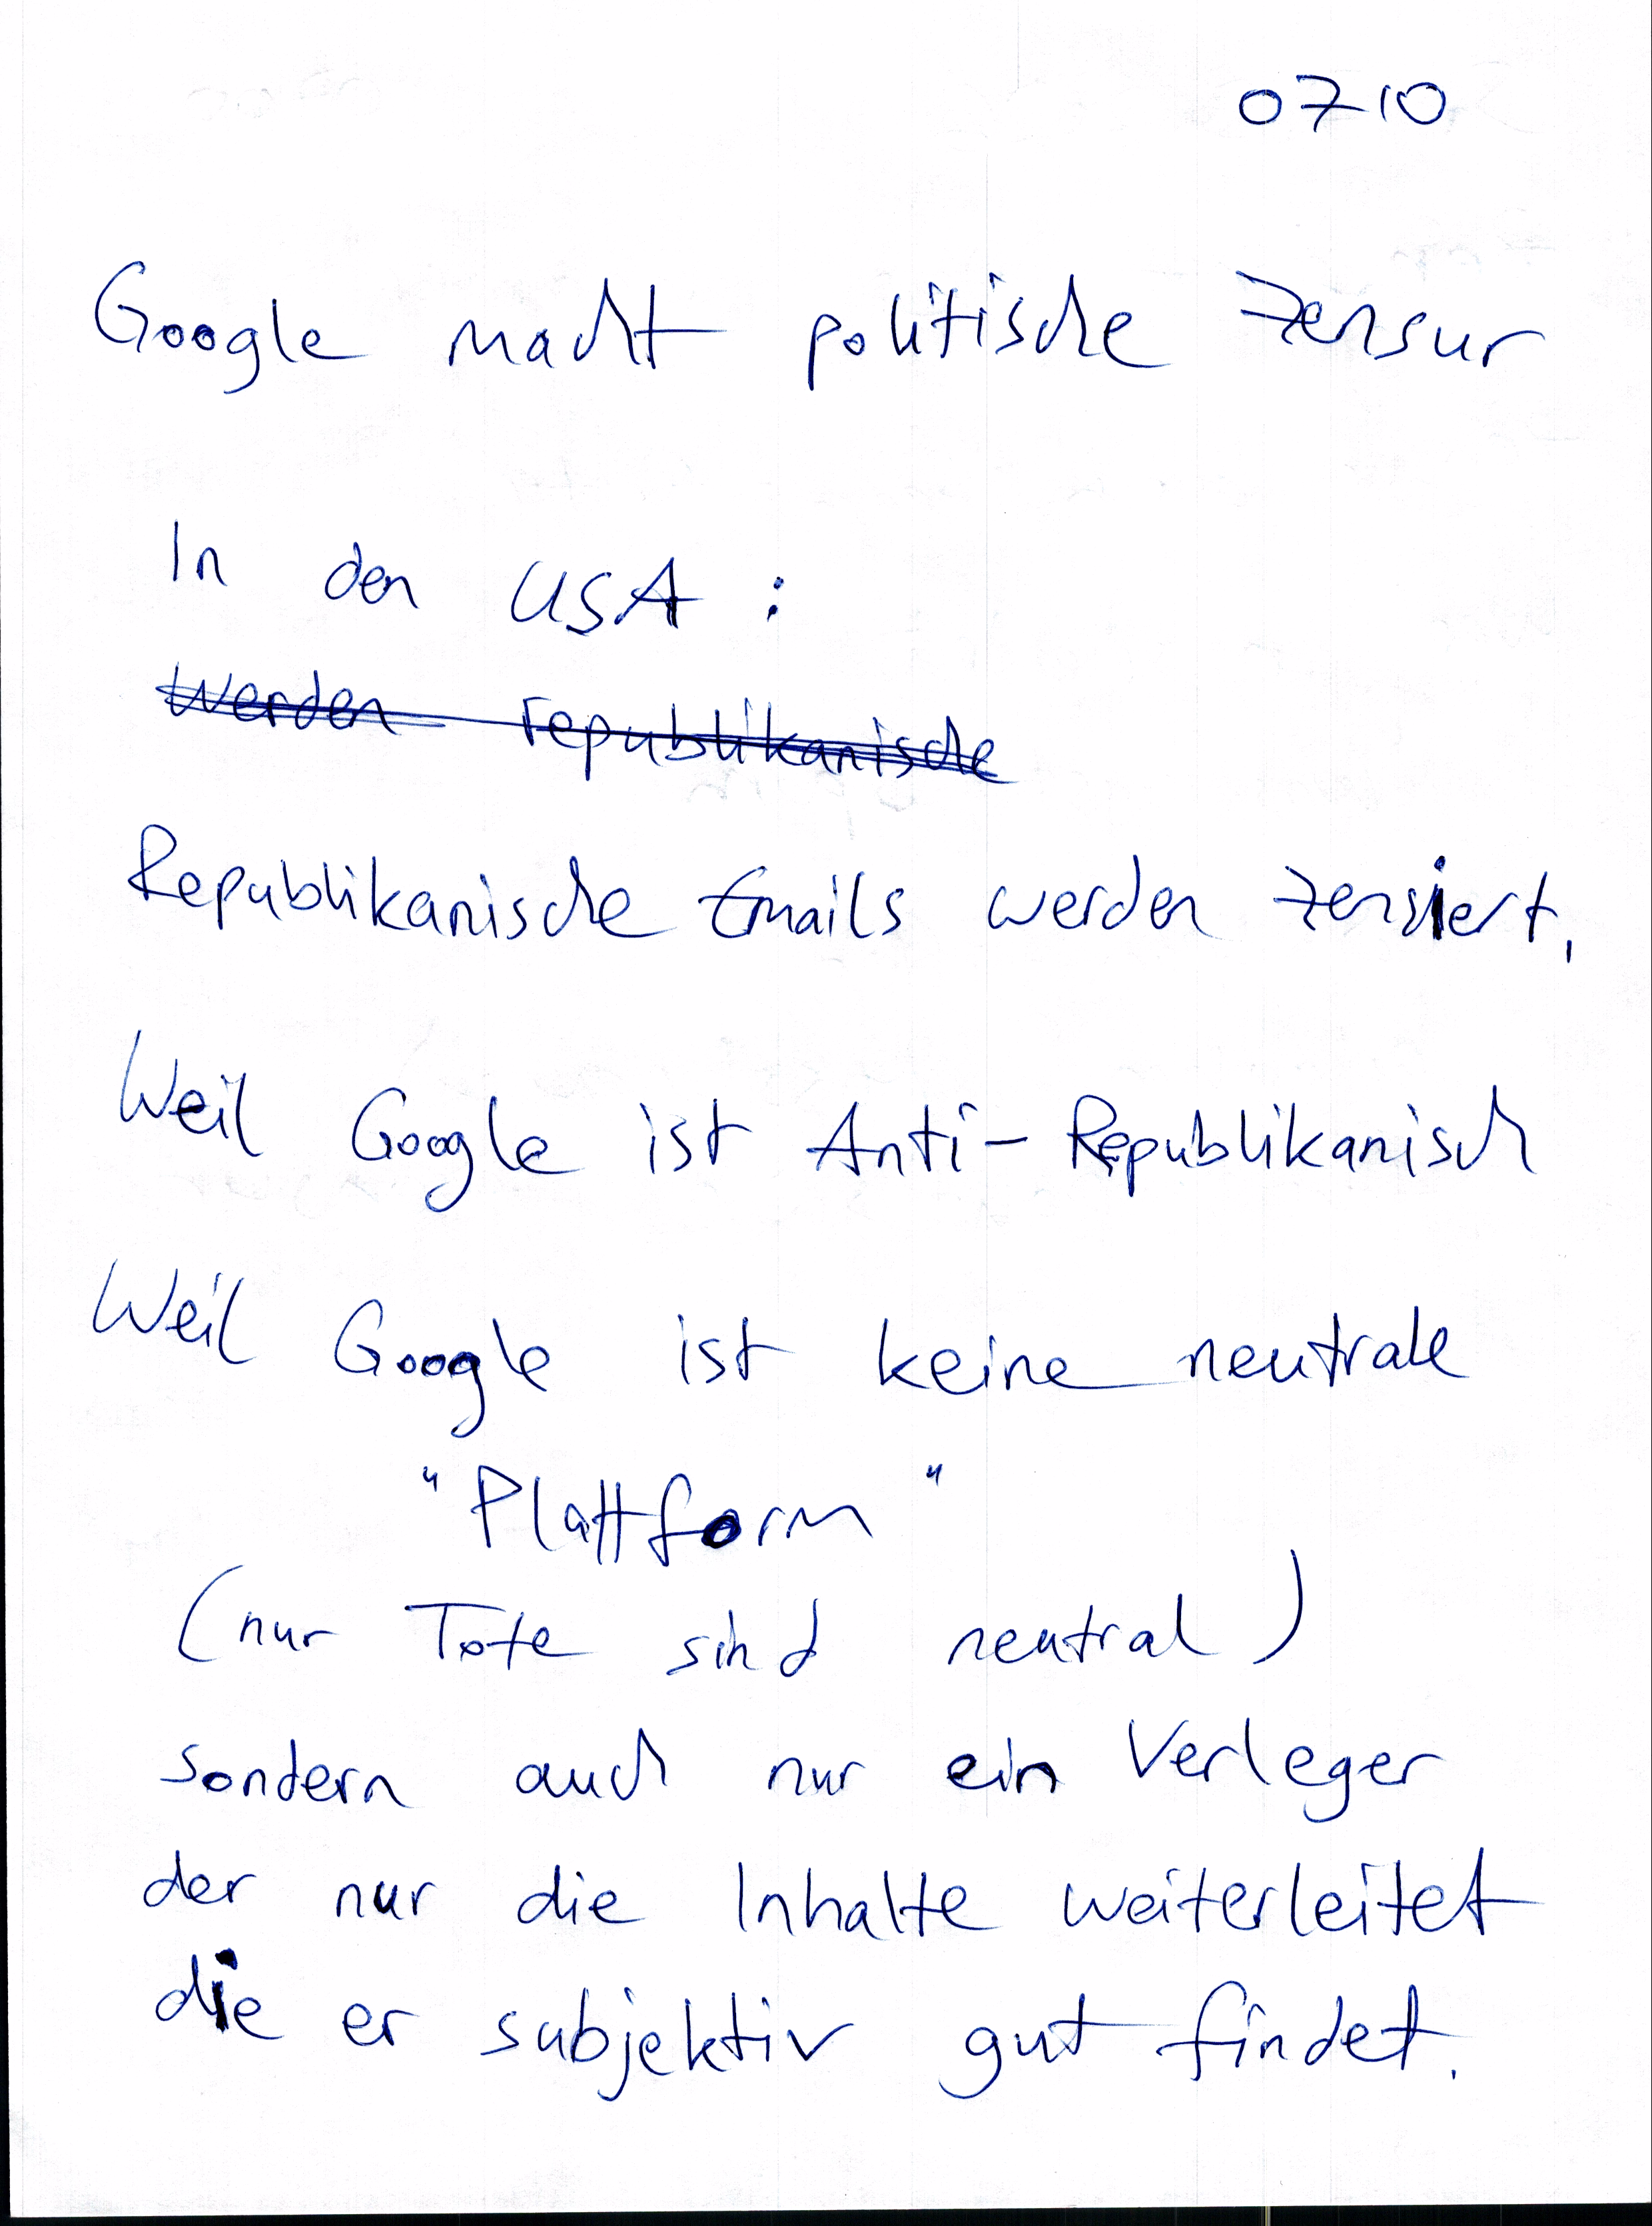 0710
Google macht politische Zensur
In den USA :
Werden republikanische
Republikanische Emails werden zensiert,
Weil Google ist Anti-Republikanisch
Weil Google ist keine neutrale
"Plattform"
(nur Tote sind neutral)
sondern auch nur ein Verleger
der nur die Inhalte weiterleitet
die er subjektiv gut findet.